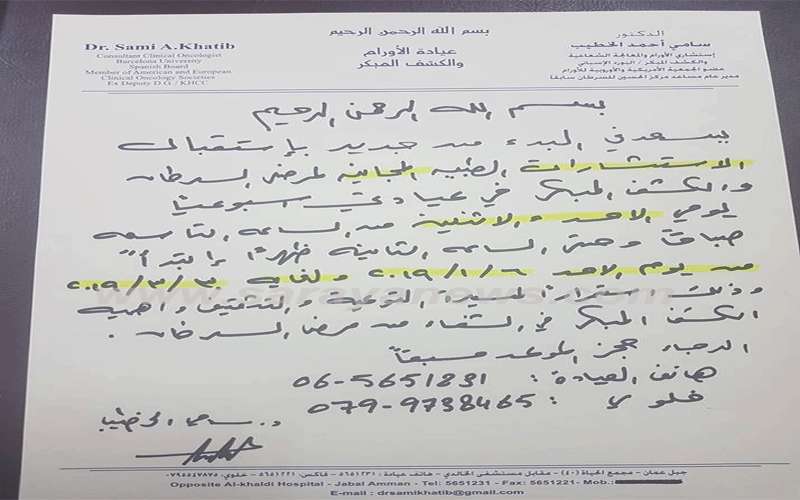 بسم الله الرحمن الرحيم
Dr. Sami A.Khatib
Consultant Clinical Oncologist
Barcelona University
Spanish Board
Member of American and European
Clinical Oncology Societies
Ex Deputy D.G / KHCC
عيادة الأورام
والكشف المبكر
الدكتور
سامي أحمد الخطيب
إستشاري الأورام والمعالجة الشعاعية
والكشف المبكر / البورد الإسباني
عضو الجمعية الأمريكية والأوروبية للأورام
مدير عام مساعد مركز الحسين للسرطان سابقا
بسم الله الرحمن الرحيم
يسعدني البدء من جديد بإستقبال
الاستشارات الطبية المجانية لمرضى السرطان
والكشف المبكر في عيادتي اسبوعياً
يومي الاحد والاثنين من الساعة التاسعة
صباحاً وحتى الساعة الثانية ظهراً إبتداءً
من يوم الاحد ٢٠١٩/١/٦ ولغاية ٢٠١٩/٣/٣٠
وذلك استمراراً لمسيرة التوعية والتثقيف واهمية
الكشف المبكر في الشفاء من مرض السرطان .
الرجاء حجز الموعد مسبقاً
هاتف العيادة : 06-5651231
خلوي : 079-9738465
د. سامي الخطيب
www.sarayanews.com
جبل عمان - مجمع الحياة (٤٠) - مقابل مستشفى الخالدي - هاتف عيادة : ٥٦٥١٢٣١ - فاكس: ٥٦٥١٢٢١ - خلوي: ٠٧٩٥٥٤٧٨٧٥
Opposite Al-khaldi Hospital - Jabal Amman - Tel: 5651231 - Fax: 5651221- Mob.:
E-mail : drsamikhatib@gmail.com